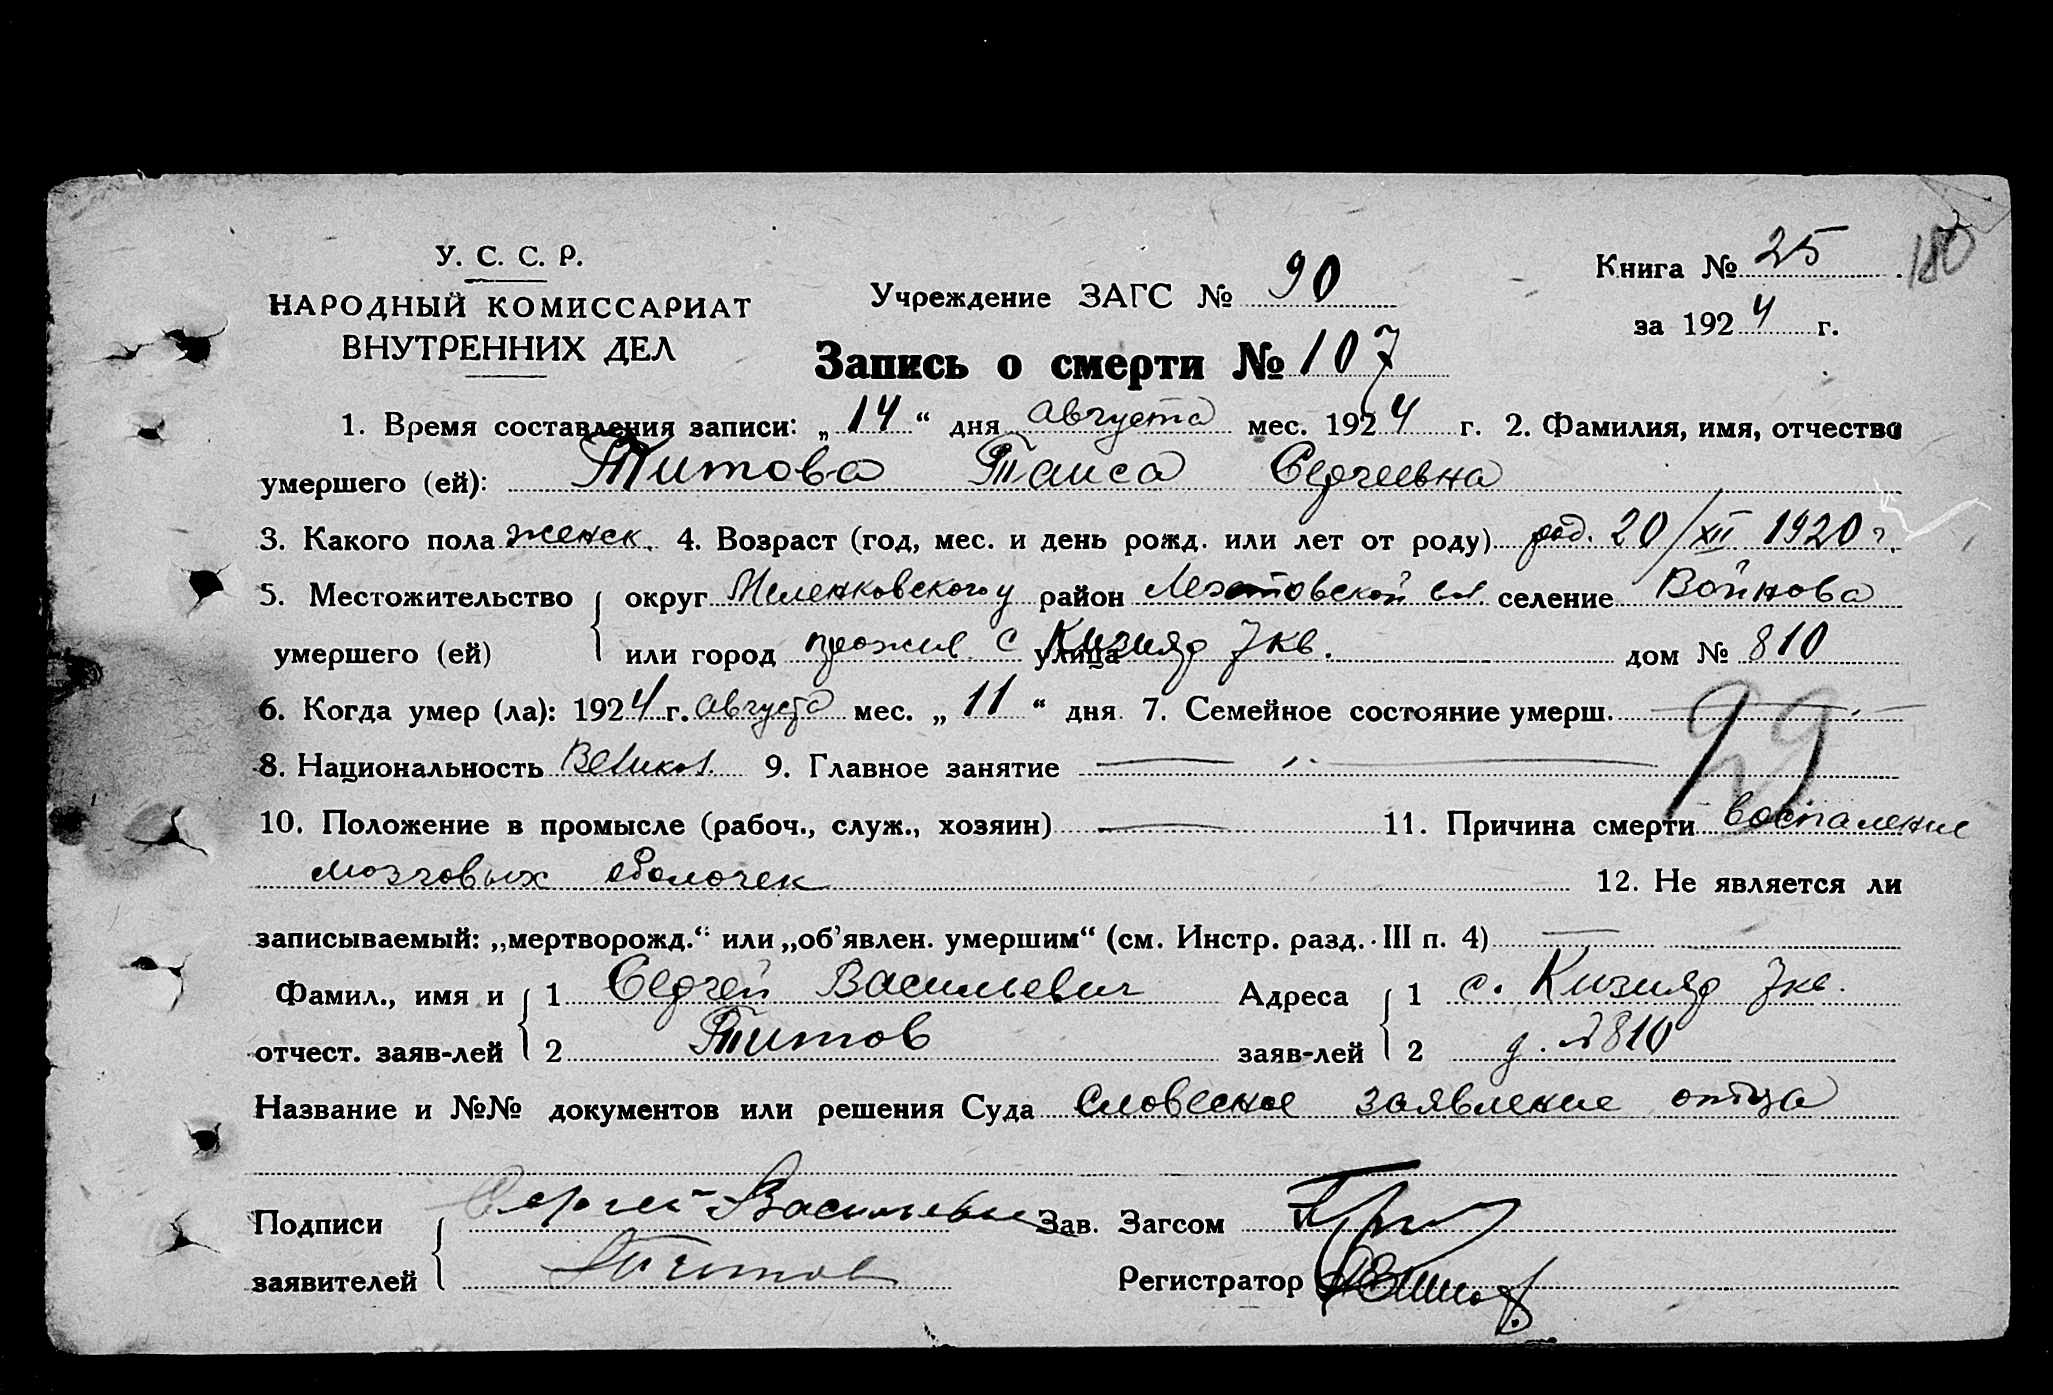 У. С. С. Р.
НАРОДНЫЙ КОМИССАРИАТ
ВНУТРЕННИХ ДЕЛ
Учреждение ЗАГС № 90
Книга № 25
180
за 1924 г.
Запись о смерти № 107
1. Время составления записи: „14“ дня августа мес. 1924 г. 2. Фамилия, имя, отчество
умершего (ей): Титова Таиса Сергеевна
3. Какого пола женск. 4. Возраст (год, мес. и день рожд. или лет от роду) род. 20/XII 1920 г.
5. Местожительство округ Меленковского у район вол. селение Войнова
умершего (ей) или город прожив. с улица Кизияр 7 кв. дом № 810
6. Когда умер (ла): 1924 г. августа мес. „11“ дня 7. Семейное состояние умерш. —
8. Национальность Великор. 9. Главное занятие —
10. Положение в промысле (рабоч., служ., хозяин) — 11. Причина смерти воспаление
мозговых оболочек 12. Не является ли
записываемый: „мертворожд.“ или „об'явлен. умершим“ (см. Инстр. разд. III п. 4) —
Фамил., имя и 1 Сергей Васильевич Адреса 1 с. Кизияр 7 кв.
отчест. заяв-лей 2 Титов заяв-лей 2 д. № 810
Название и №№ документов или решения Суда словесное заявление отца
Подписи Сергей Васильевич Зав. Загсом
заявителей Титов Регистратор